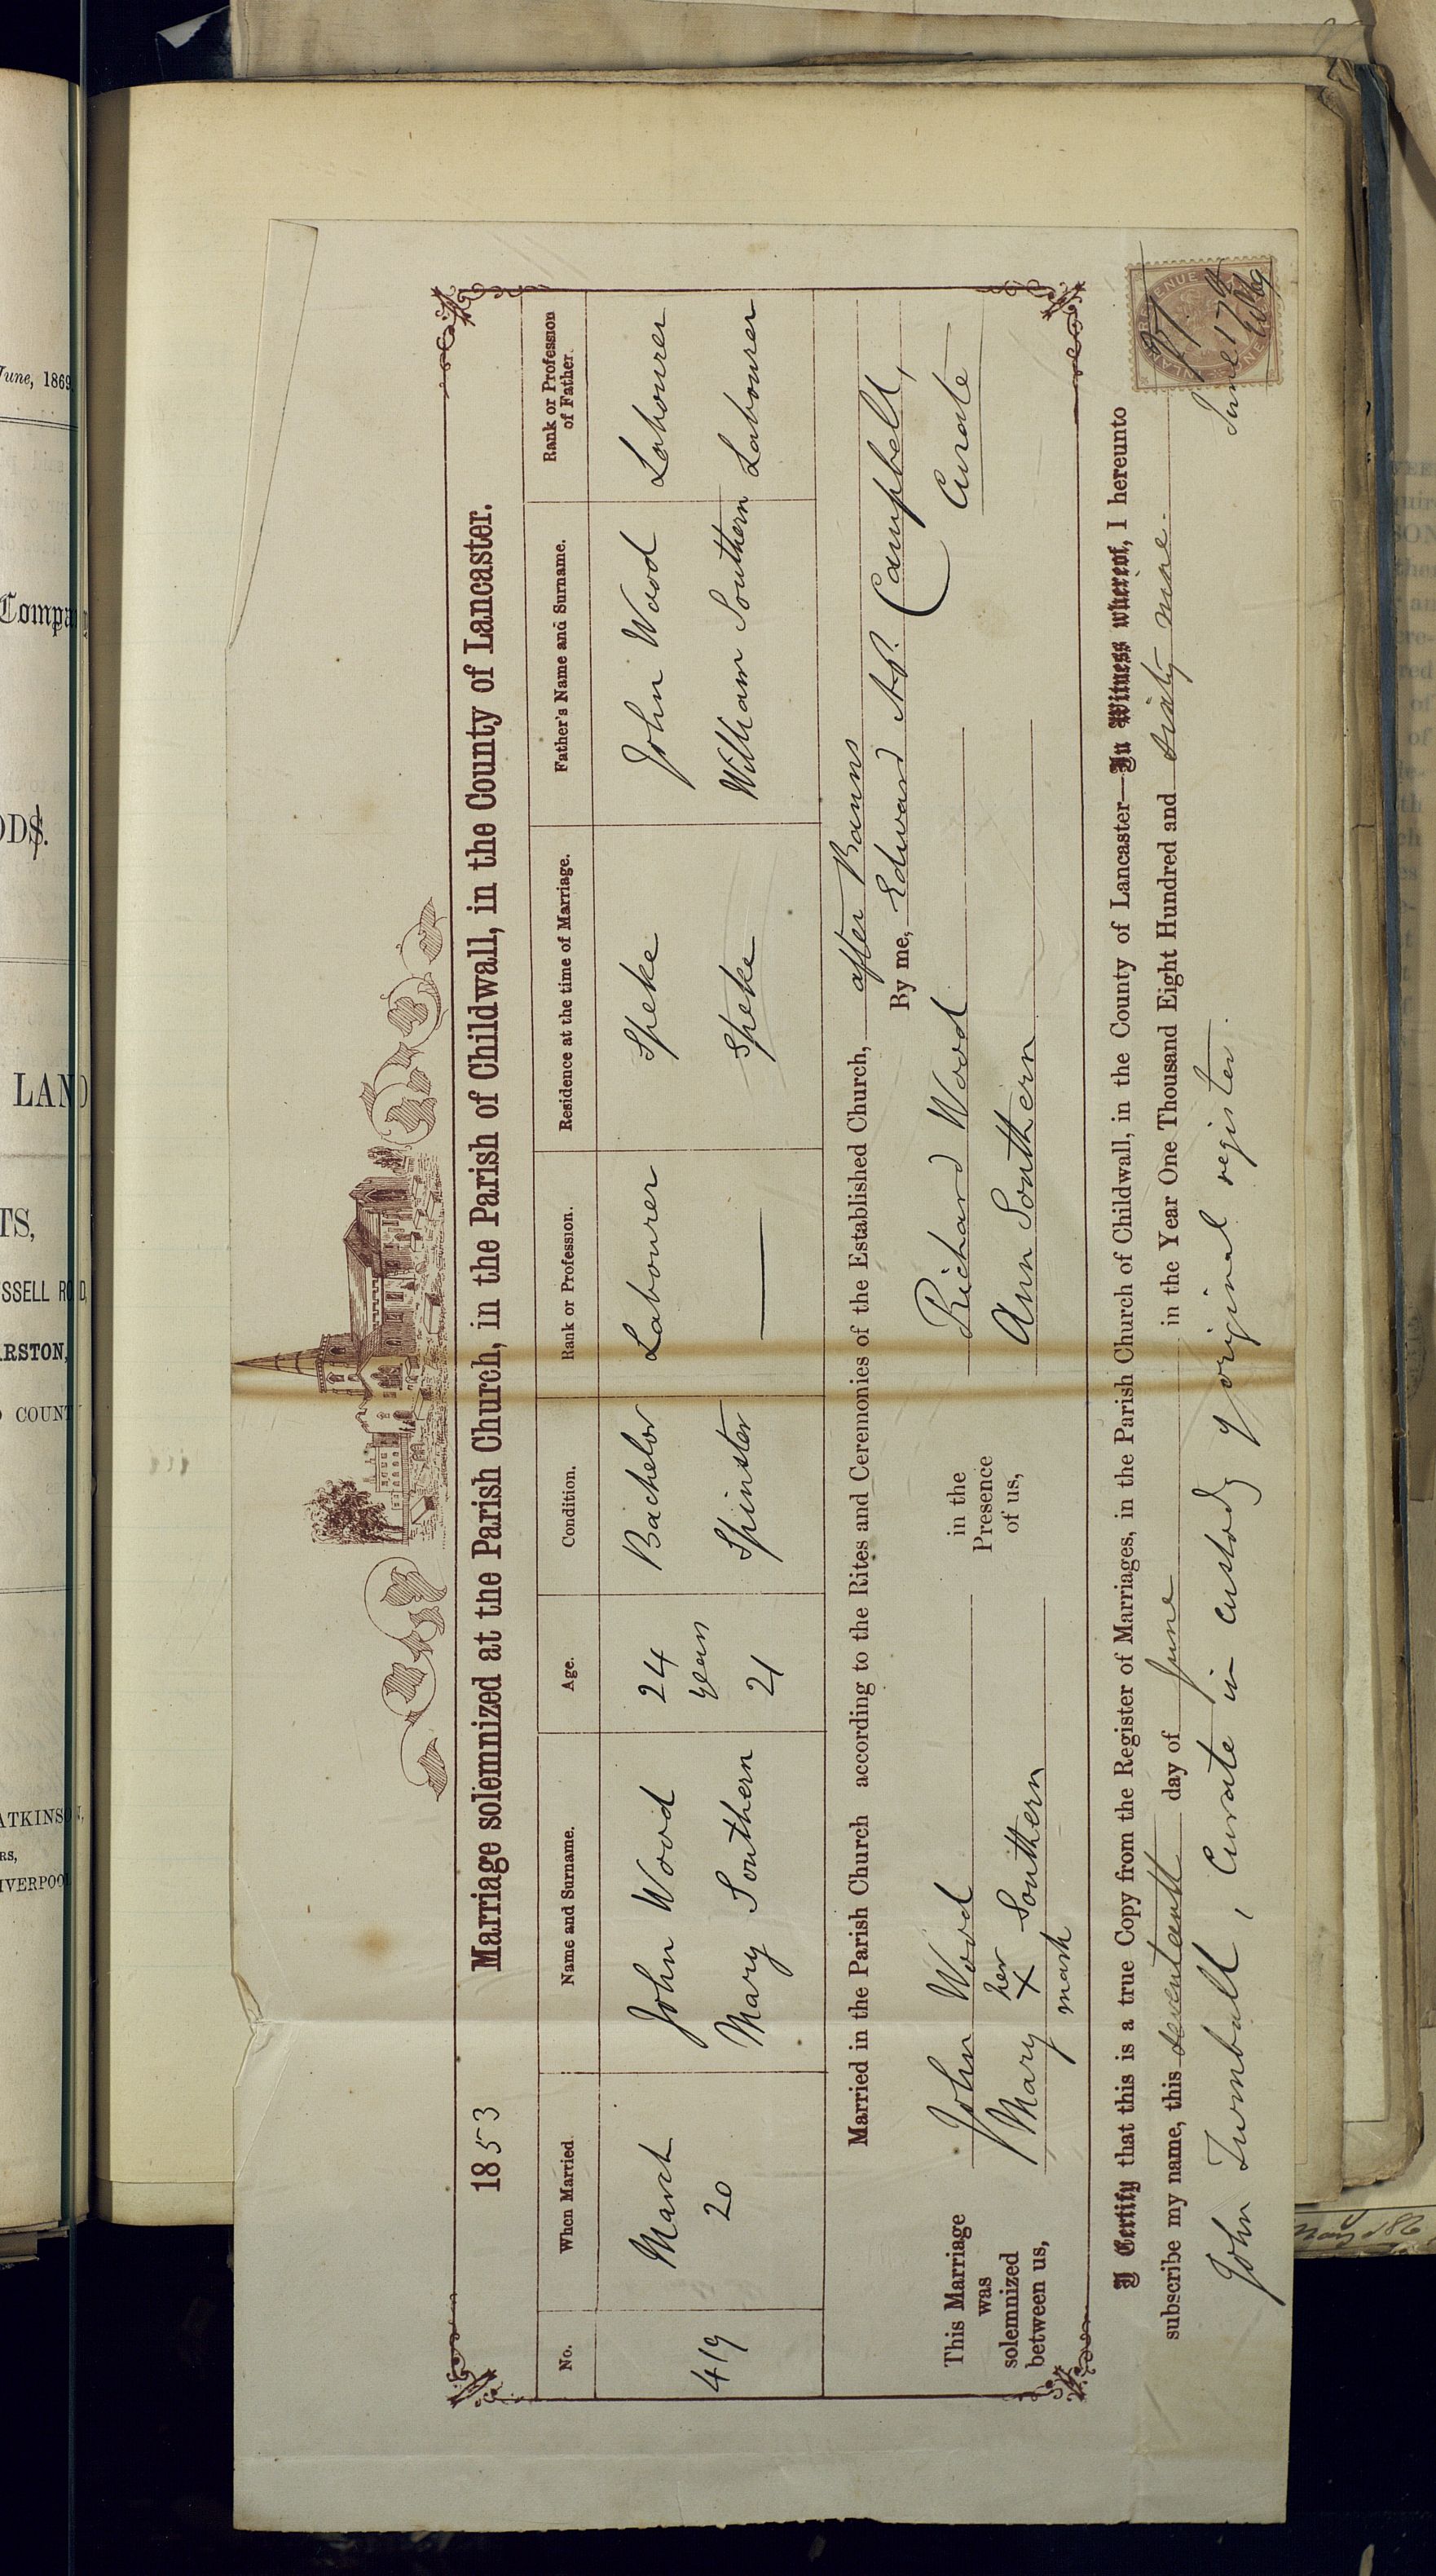 June, 1869
Compa
ODS.
LAND
TS,
USSELL ROAD,
ARSTON,
COUNT
ATKINSON,
RS,
LIVERPOOL
1853 Marriage solemnized at the Parish Church, in the Parish of Childwall, in the County of Lancaster.
No. When Married. Name and Surname. Age. Condition. Rank or Profession. Residence at the time of Marriage. Father's Name and Surname. Rank or Profession of Father.
419 March 20 John Wood 24 years Bachelor Labourer Speke John Wood Labourer
Mary Southern 21 Spinster — Speke William Southern Labourer
Married in the Parish Church according to the Rites and Ceremonies of the Established Church, after Banns
By me, Edward A. P. Campbell,
Curate
This Marriage
was
solemnized
between us,
John Wood
Mary her X mark Southern
in the
Presence
of us,
Richard Wood
Ann Southern
I Certify that this is a true Copy from the Register of Marriages, in the Parish Church of Childwall, in the County of Lancaster—In Witness whereof, I hereunto
subscribe my name, this seventeenth day of June in the Year One Thousand Eight Hundred and sixty nine.
John Turnbull, Curate in custody of original register.
June 17th 1869